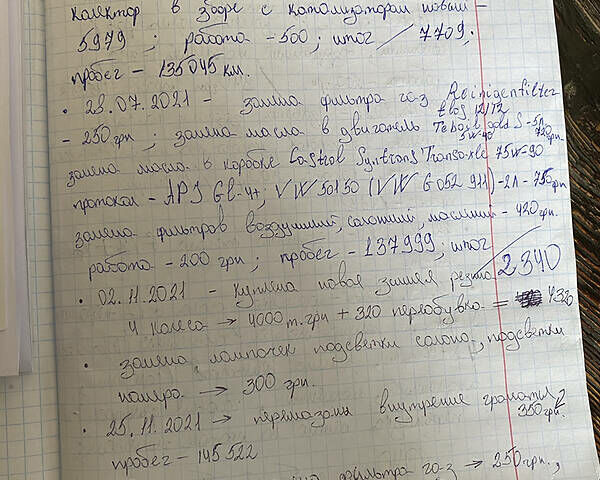 колектор в зборе с катализатором новый -
5979 ; работа - 500 ; итог 7709 ;
пробег - 135045 км.
• 28.07.2021 - замена фильтра газ
- 250 грн ; замена масла в двигатель 5W-40 720 грн
замена масла в коробке Castrol Syntrans Transaxle 75W-90
протокол - API GL-4+, VW 50150 (VW G 052 911) - 2л - 750 грн
замена фильтров воздушний, салонний, маслний - 420 грн.
работа - 200 грн ; пробег - 137999 ; итог
2340
• 02.11.2021 - куплена новая зимняя резина
4 колеса → 4000 т.грн + 320 переобувка = 4320
• замена лампочек подсветки салона, подсветки
номера → 300 грн.
• 25.11.2021 → перемазаны внутрение гранаты 2
350 грн.
пробег - 145522
фильтра газ → 250 грн.,